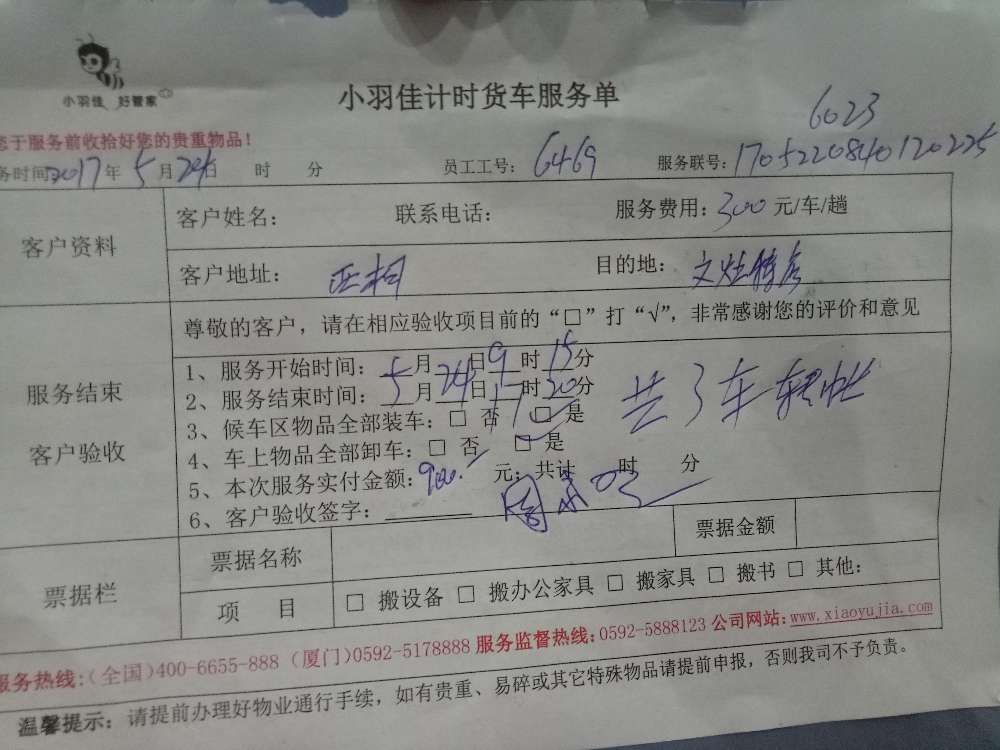 小羽佳 好管家
小羽佳计时货车服务单
6023
您于服务前收拾好您的贵重物品！
务时间2017年5月24日 时 分 员工工号：6469 服务联号：1705220840120225
客户资料
客户姓名： 联系电话： 服务费用：300元/车/趟
客户地址： 目的地：
服务结束
客户验收
尊敬的客户，请在相应验收项目前的“□”打“√”，非常感谢您的评价和意见
1、服务开始时间：5月24日9时15分
2、服务结束时间：5月24日17时20分
共3车
3、候车区物品全部装车：□ 否 □ 是
4、车上物品全部卸车：□ 否 □ 是
5、本次服务实付金额：900.- 元；共计 时 分
6、客户验收签字：
票据栏
票据名称 票据金额
项 目 □ 搬设备 □ 搬办公家具 □ 搬家具 □ 搬书 □ 其他：
服务热线：（全国）400-6655-888（厦门）0592-5178888 服务监督热线：0592-5888123 公司网站：www.xiaoyujia.com
温馨提示：请提前办理好物业通行手续，如有贵重、易碎或其它特殊物品请提前申报，否则我司不予负责。